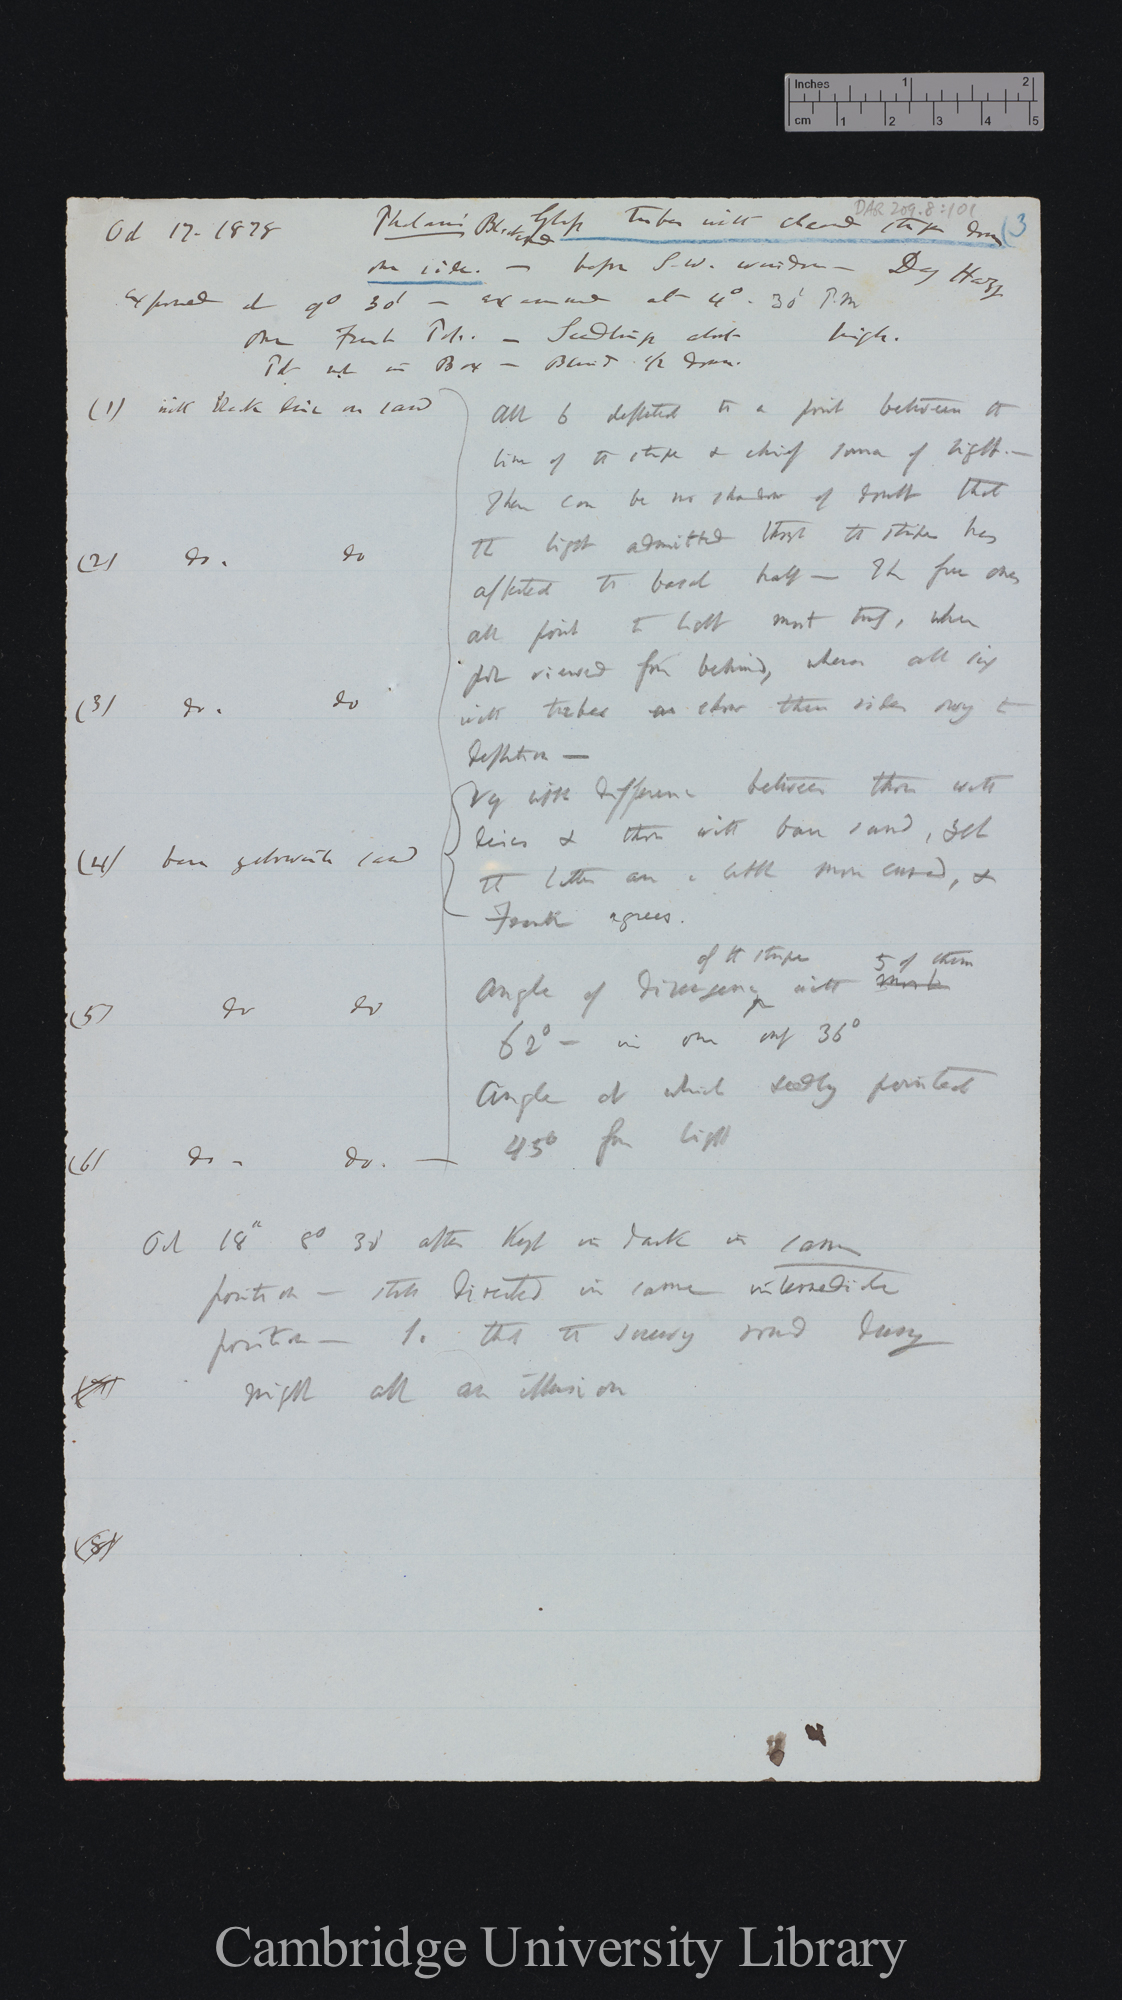 Inches 1 2
cm 1 2 3 4 5
DAR 209.8:101
(3
Oct 17. 1878 Phalaris Blackened Glass tubes with cleared stripe down
one side. — before S.W. window — Day Hazy
Exposed at 9° 30' — examined at 4°. 30' P.M
one Frank Pot. — Seedlings about high.
Pot up in Box — Blind 1/2 down.
(1) with Black line on sand
(2) do. do
(3) do. do
(4) bare yellowish sand
(5) do do
(6) do - do. —
All 6 deflected to a point between the
line of the stripe & chief source of light. —
There can be no shadow of doubt that
the light admitted through the stripes has
affected the basal half — The free ones
all point to light most truly, when
pot viewed from behind, whereas all six
with tubes show their sides owing to
deflection —
Very little difference between those with
lines & those with bare sand, yet
the latter are a little more curved, &
Frank agrees.
of the stripe 5 of them
Angle of divergence with most
62° — in one only 36°
Angle at which seedling pointed
45° from light
Oct 18th 8° 30' after kept in dark in same
position — still directed in same intermediate
position — So that the swing round during
night all an illusion
(7)
(8)
Cambridge University Library